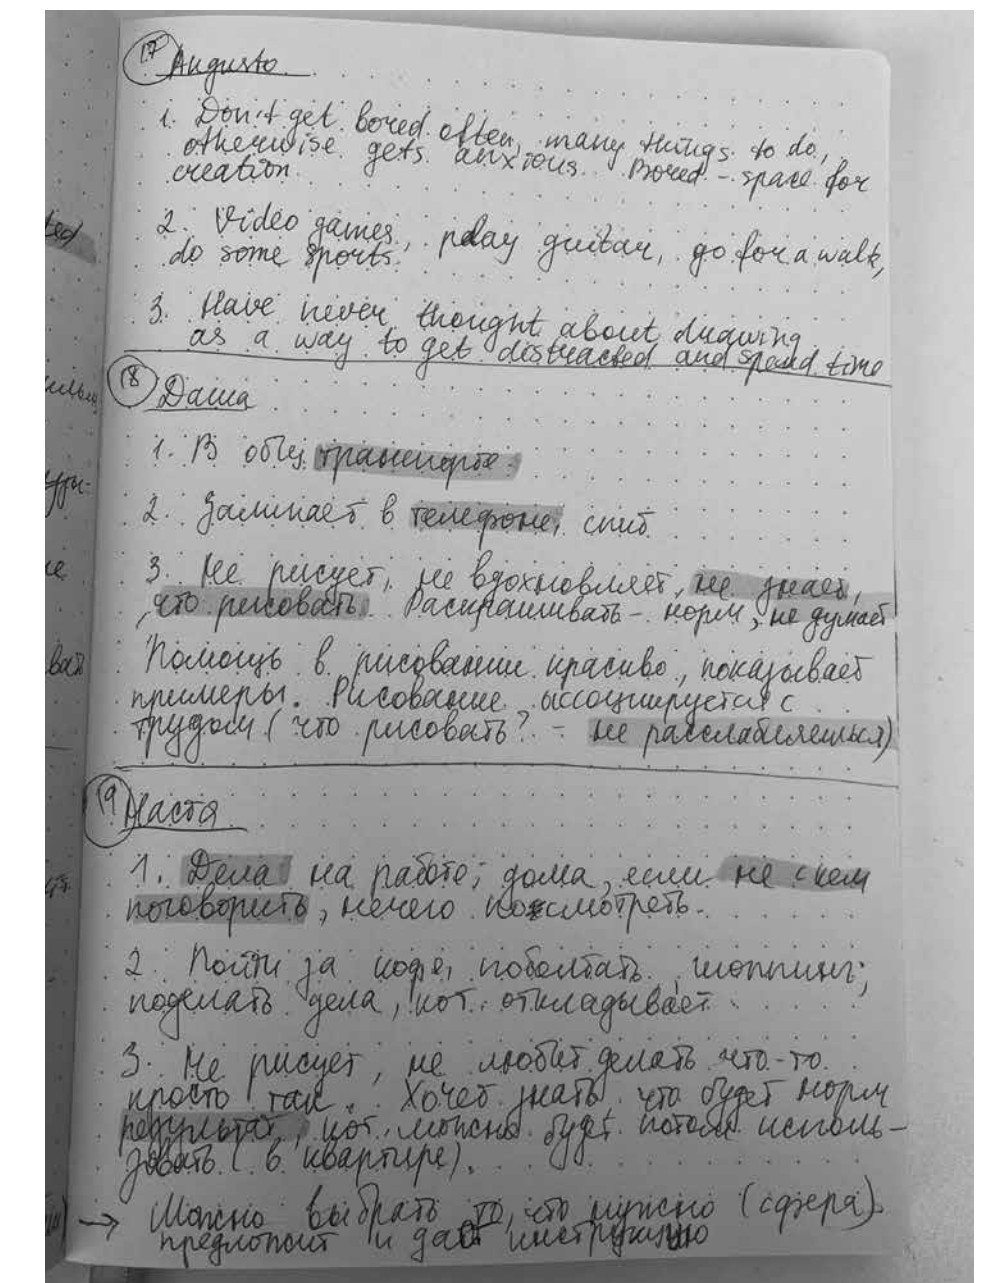 17 Augusto
1. Don't get bored often, many things to do,
otherwise gets anxious. Bored - space for
creation.
2. Video games, play guitar, go for a walk,
do some sports.
3. Have never thought about drawing
as a way to get distracted and spend time
18 Даша
1. В общ. транспорте.
2. Залипает в телефоне, спит
3. Не рисует, не вдохновляет, не знает,
что рисовать. Раскрашивать - норм, не думает
Помощь в рисовании красиво, показывает
примеры. Рисование ассоциируется с
трудом (что рисовать? - не расслабляешься)
19 Настя
1. Дела на работе; дома, если не с кем
поговорить, нечего посмотреть.
2. Пойти за кофе, поболтать, шоппинг;
поделать дела, кот. откладывает
3. Не рисует, не любит делать что-то
просто так. Хочет знать, что будет норм
результат, кот. можно будет потом исполь-
зовать (в квартире).
→ Можно выбрать то, что нужно (сфера)
предложит и даст инструкцию